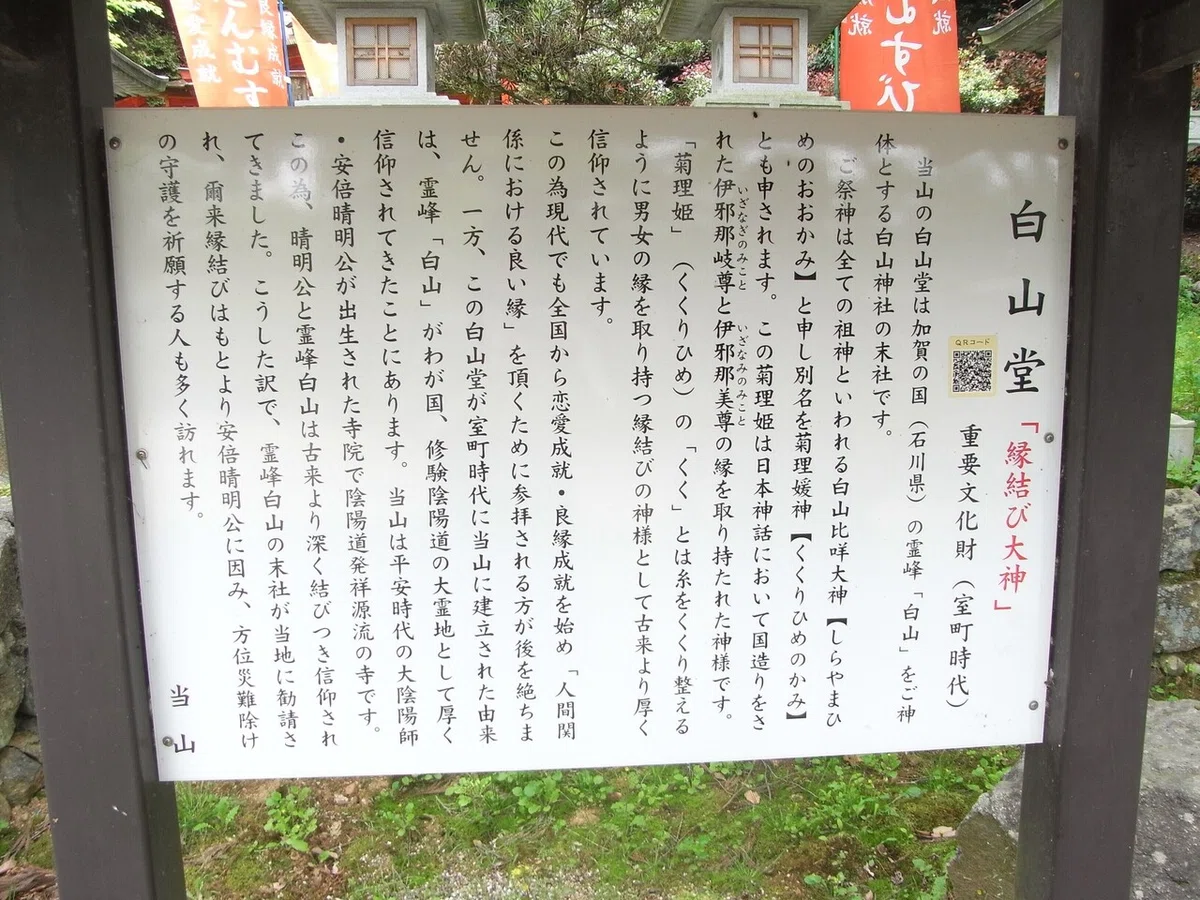 白山堂「縁結び大神」
QRコード
重要文化財（室町時代）
当山の白山堂は加賀の国（石川県）の霊峰「白山」をご神
体とする白山神社の末社です。
ご祭神は全ての祖神といわれる白山比咩大神【しらやまひ
めのおおかみ】と申し別名を菊理媛神【くくりひめのかみ】
とも申されます。この菊理姫は日本神話において国造りをさ
れた伊邪那岐尊と伊邪那美尊の縁を取り持たれた神様です。
いざなぎのみこと
いざなみのみこと
「菊理姫」（くくりひめ）の「くく」とは糸をくくり整える
ように男女の縁を取り持つ縁結びの神様として古来より厚く
信仰されています。
この為現代でも全国から恋愛成就・良縁成就を始め「人間関
係における良い縁」を頂くために参拝される方が後を絶ちま
せん。一方、この白山堂が室町時代に当山に建立された由来
は、霊峰「白山」がわが国、修験陰陽道の大霊地として厚く
信仰されてきたことにあります。当山は平安時代の大陰陽師
・安倍晴明公が出生された寺院で陰陽道発祥源流の寺です。
この為、晴明公と霊峰白山は古来より深く結びつき信仰され
てきました。こうした訳で、霊峰白山の末社が当地に勧請さ
れ、爾来縁結びはもとより安倍晴明公に因み、方位災難除け
の守護を祈願する人も多く訪れます。
当山
良縁成就
えんむす
恋愛成就
就
むすび
就